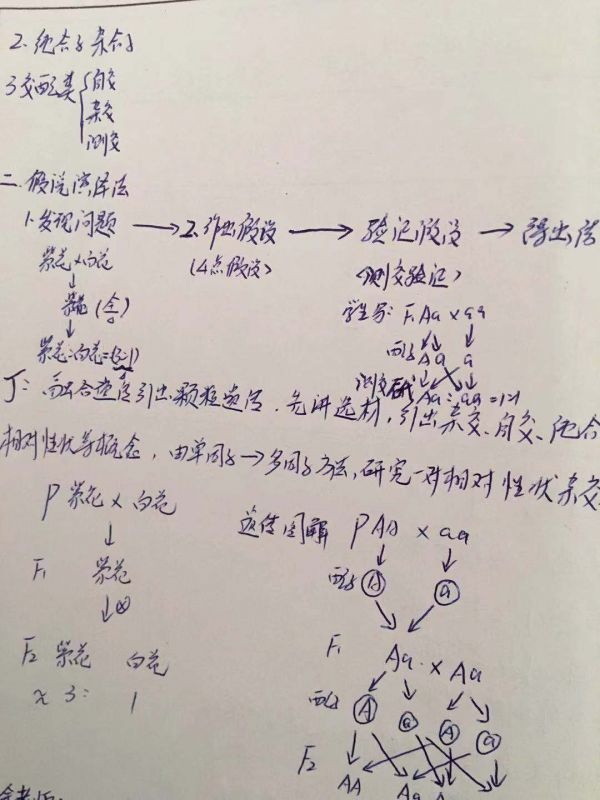 2. 纯合子 杂合子
3 交配类 { 自交
杂交
测交
二. 假说演绎法
1. 发现问题 → 2. 作出假设 → 验证假设 → 得出结
(4点假设) (测交验证)
紫花 × 白花
↓
紫花
↓
紫花:白花=(3:1)
F₁ Aa × aa
配子 A a a
测交后代 Aa : aa = 1:1
J: 融合遗传引出颗粒遗传. 先讲选材, 引出杂交、自交、纯合
相对性状等概念, 由单因子→多因子方法, 研究一对相对性状杂交
P 紫花 × 白花
↓
F₁ 紫花
↓⊗
F₂ 紫花 白花
3 : 1
遗传图解 P AA × aa
配子 A a
F₁ Aa × Aa
配子 A a A a
F₂ AA Aa